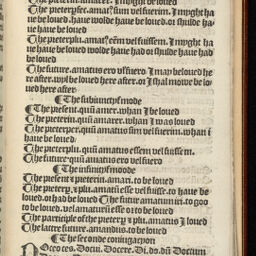 The preterim. amarer. I myght be loued
The preterper. amat9 sim vel fuerim. I myght ha
ue be loued. haue wolde haue be loued. or shulde ha-
ue haue be loued
The preterplu. amat9 eem vel fuissem. I myght ha
ue be loued wolde haue had or shulde haue had
be loued
The future. amatus ero vel fuero I may be loued he
re after. wyl be loued here after. or I shal mowe be lo-
ued here after
¶ The subiunctyf mode
The present. quum amer. whan I be loued
The preterim. quum amarer. whan I was loued
The preterper. quum amatus sim vel fuerim. whan i
haue be loued
The preterplu. quum amatus essem vel fuissem.
The future. quum amatus ero vel fuero
¶ The infinityf moode
The present & preterim. amari. to be loued
The preterper. & plu. amatum esse vel fuisse. to haue be
loued. or had be loued ¶ The futur amatum iri. to goo
to be loued. vel amaturum esse or to be loued
The participle of the preterper. & plu. amatus I loued
The latter future. amandus. to be loued
¶ The seconde coniugacyon
Doceo ces. Docui. Docere. Di. do. dum Doctum